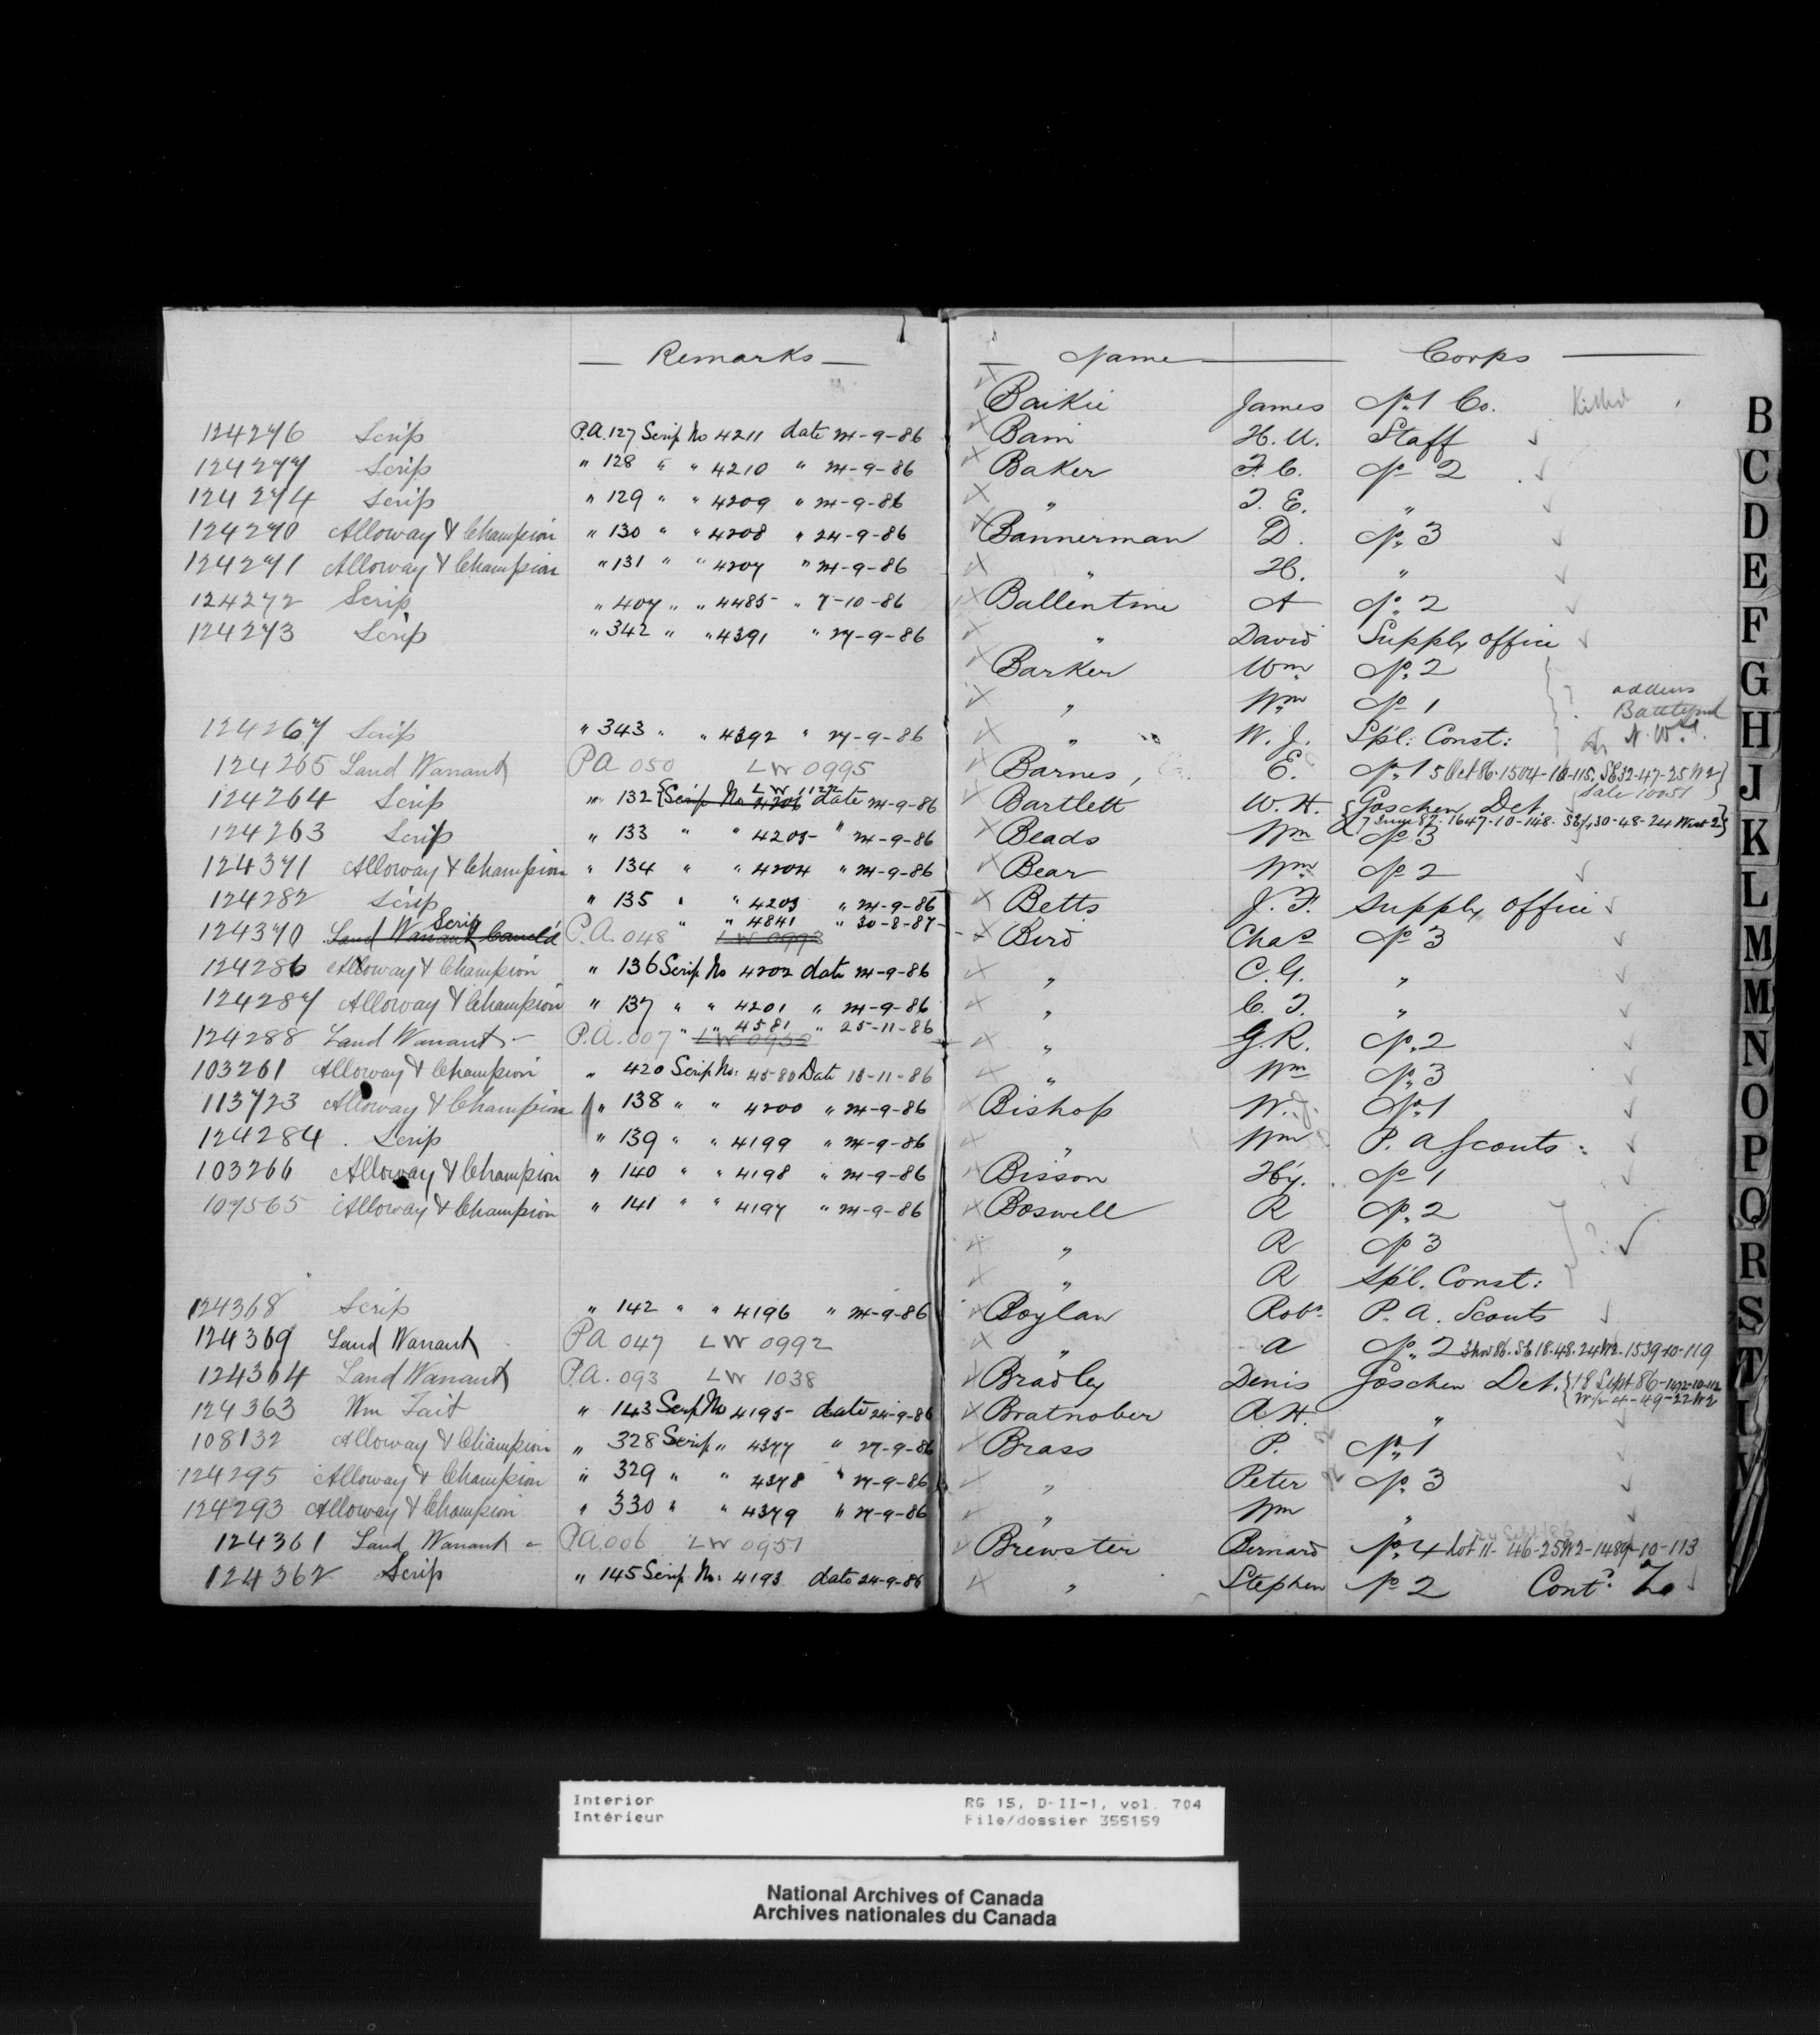 — Remarks —
124276 Scrip P.A. 127 Scrip No 4211 date 24-9-86
124277 Scrip " 128 " " 4210 " 24-9-86
124274 Scrip " 129 " " 4209 " 24-9-86
124270 Alloway & Champion " 130 " " 4208 " 24-9-86
124271 Alloway & Champion " 131 " " 4207 " 24-9-86
124272 Scrip " 407 " " 4485 " 7-10-86
124273 Scrip " 342 " " 4391 " 27-9-86
124267 Scrip " 343 " " 4392 " 27-9-86
124265 Land Warrant PA 050 LW 0995
124264 Scrip " 132 {Scrip No 4206 LW 1122 date 24-9-86
124263 Scrip " 133 " " 4205 " 24-9-86
124371 Alloway & Champion " 134 " " 4204 " 24-9-86
124282 Scrip " 135 " " 4203 " 24-9-86
" " 4841 " 30-8-87
124370 Land Warrant Cancl'd Scrip P.A. 048 LW 0993
124286 Alloway & Champion " 136 Scrip No 4202 date 24-9-86
124287 Alloway & Champion " 137 " " 4201 " 24-9-86
" " 4581 " 25-11-86
124288 Land Warrant P.A. 007 LW 0952
103261 Alloway & Champion " 420 Scrip No: 4580 Date 18-11-86
113723 Alloway & Champion " 138 " " 4200 " 24-9-86
124284 . Scrip " 139 " " 4199 " 24-9-86
103266 Alloway & Champion " 140 " " 4198 " 24-9-86
107565 Alloway & Champion " 141 " " 4197 " 24-9-86
124368 Scrip " 142 " " 4196 " 24-9-86
124369 Land Warrant PA 047 LW 0992
124364 Land Warrant P.A. 093 LW 1038
124363 Wm Tait " 143 Scrip No 4195 date 24-9-86
108132 Alloway & Champion " 328 Scrip " 4377 " 27-9-86
124295 Alloway & Champion " 329 " " 4378 " 27-9-86
124293 Alloway & Champion " 330 " " 4379 " 27-9-86
124361 Land Warrant PA 006 LW 0951
124362 Scrip " 145 Scrip No: 4193 date 24-9-86
— Name — Corps —
Baikie James No. 1 Co. Killed
Bain H. U. Staff
Baker F. C. No 2
" T. E. "
Bannerman D. No. 3
" H. "
Ballentine A No. 2
" David Supply Office
Barker Wm No. 2
" Wm No 1
address
Battleford
N. W. T.
" W. J. Spl: Const:
Barnes, E. No. 1 5 Oct 86-1504-10-115. SE 32-47-25 W2}
Sale 10051
Bartlett W. H. {Goschen Det.
7 June 87-1647-10-148- 30-48-24 West 2}
Beads Wm No 3
Bear Wm No 2
Betts J. F. Supply Office
Bird Chas No 3
" C. G. "
" C. T. "
" G. R. No. 2
" Wm No. 3
Bishop W. J. No. 1
" Wm P. A Scouts
Bisson Hy. No 1
Boswell R No. 2
" R No 3
" R Spl. Const:
Boylan Robt P. A. Scouts
" A No. 2 3 Nov 86. SE 18-48-24 W2-1539-10-119
Bradley Denis Goschen Det. {18 Sept 86-1472-10-112
4-49-22 W2
Bratnober A. H. "
Brass P. No. 1
" Peter No. 3
" Wm "
Brewster Bernard No. 4 Lot 11- 46-25 W2-1489-10-113
" Stephen No 2 Contd. To
B
C
D
E
F
G
H
J
K
L
M
M
N
O
P
Q
R
S
T
Interior
Intérieur
RG 15, D-II-1, vol. 704
File/dossier 355159
National Archives of Canada
Archives nationales du Canada